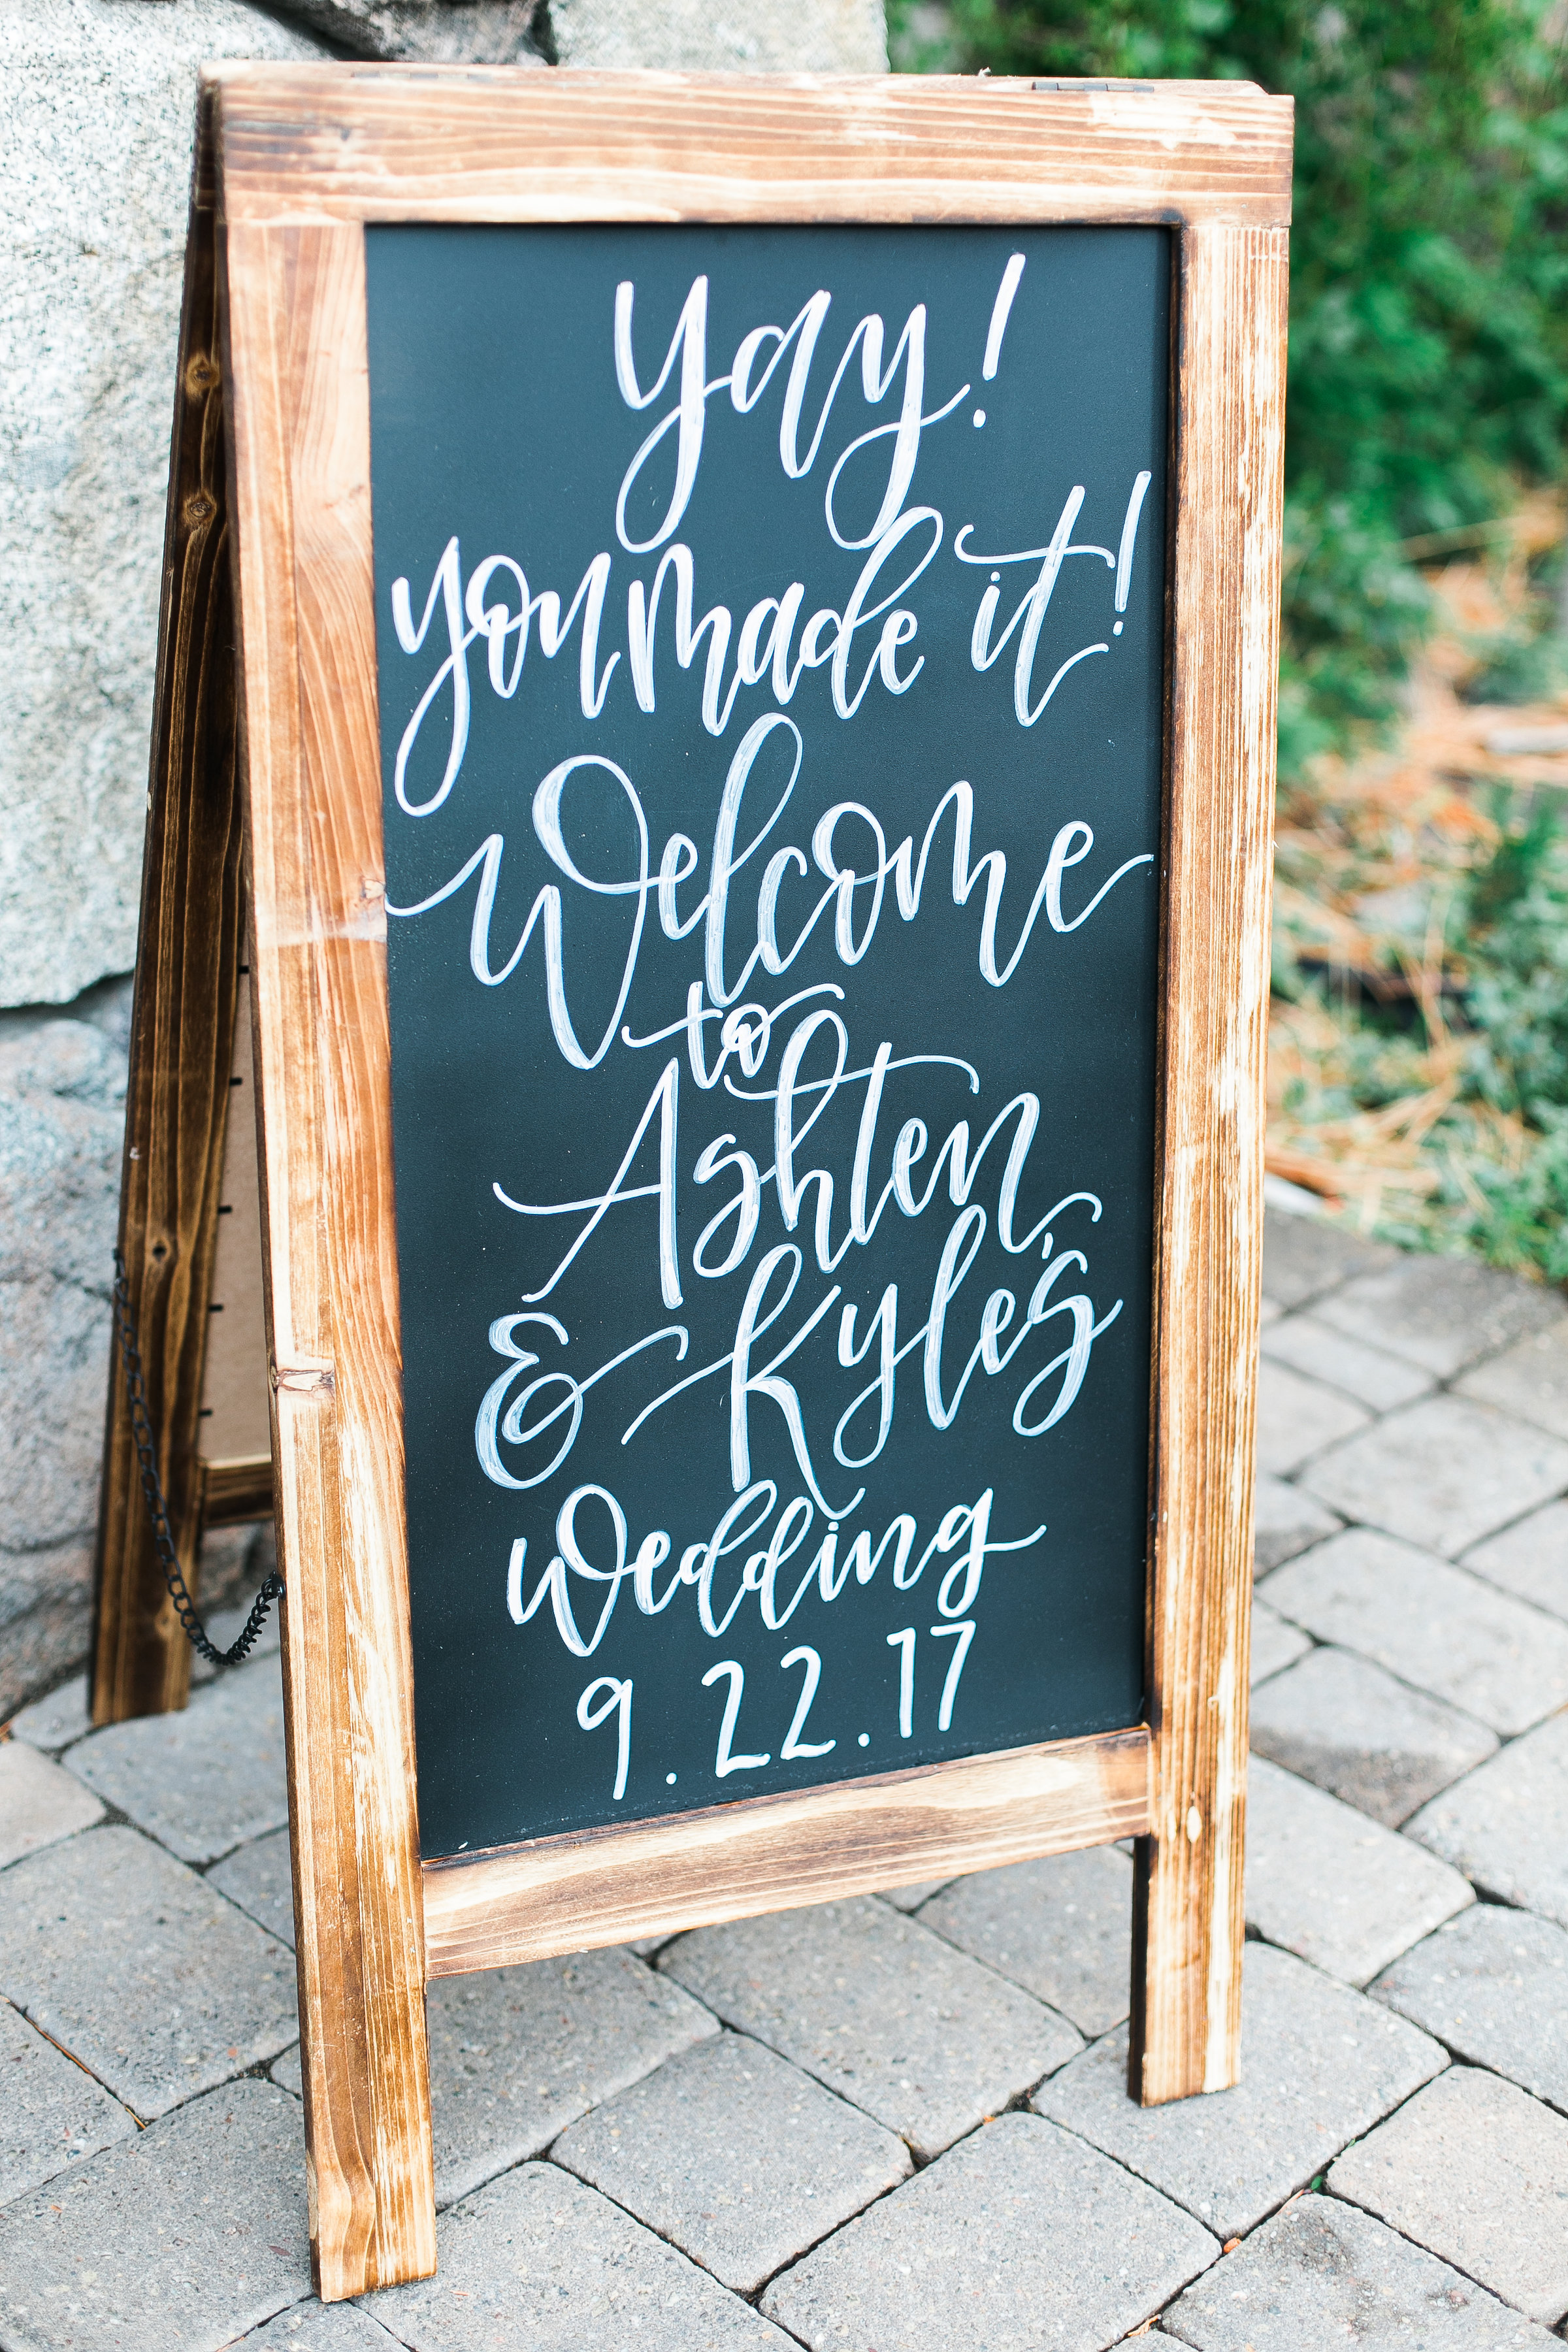 yay!
you made it!
Welcome
to
Ashten
& Kyle's
Wedding
9.22.17